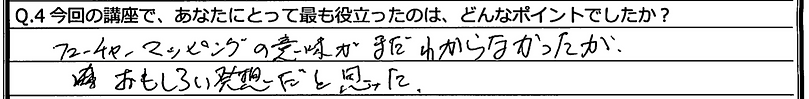 Q.4 今回の講座で、あなたにとって最も役立ったのは、どんなポイントでしたか？
フューチャーマッピングの意味がまだわからなかったが、
おもしろい発想だと思った。